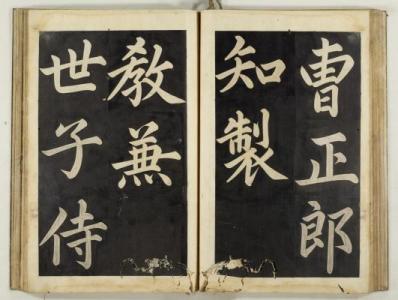 曺正郎
知製
敎兼
世子侍